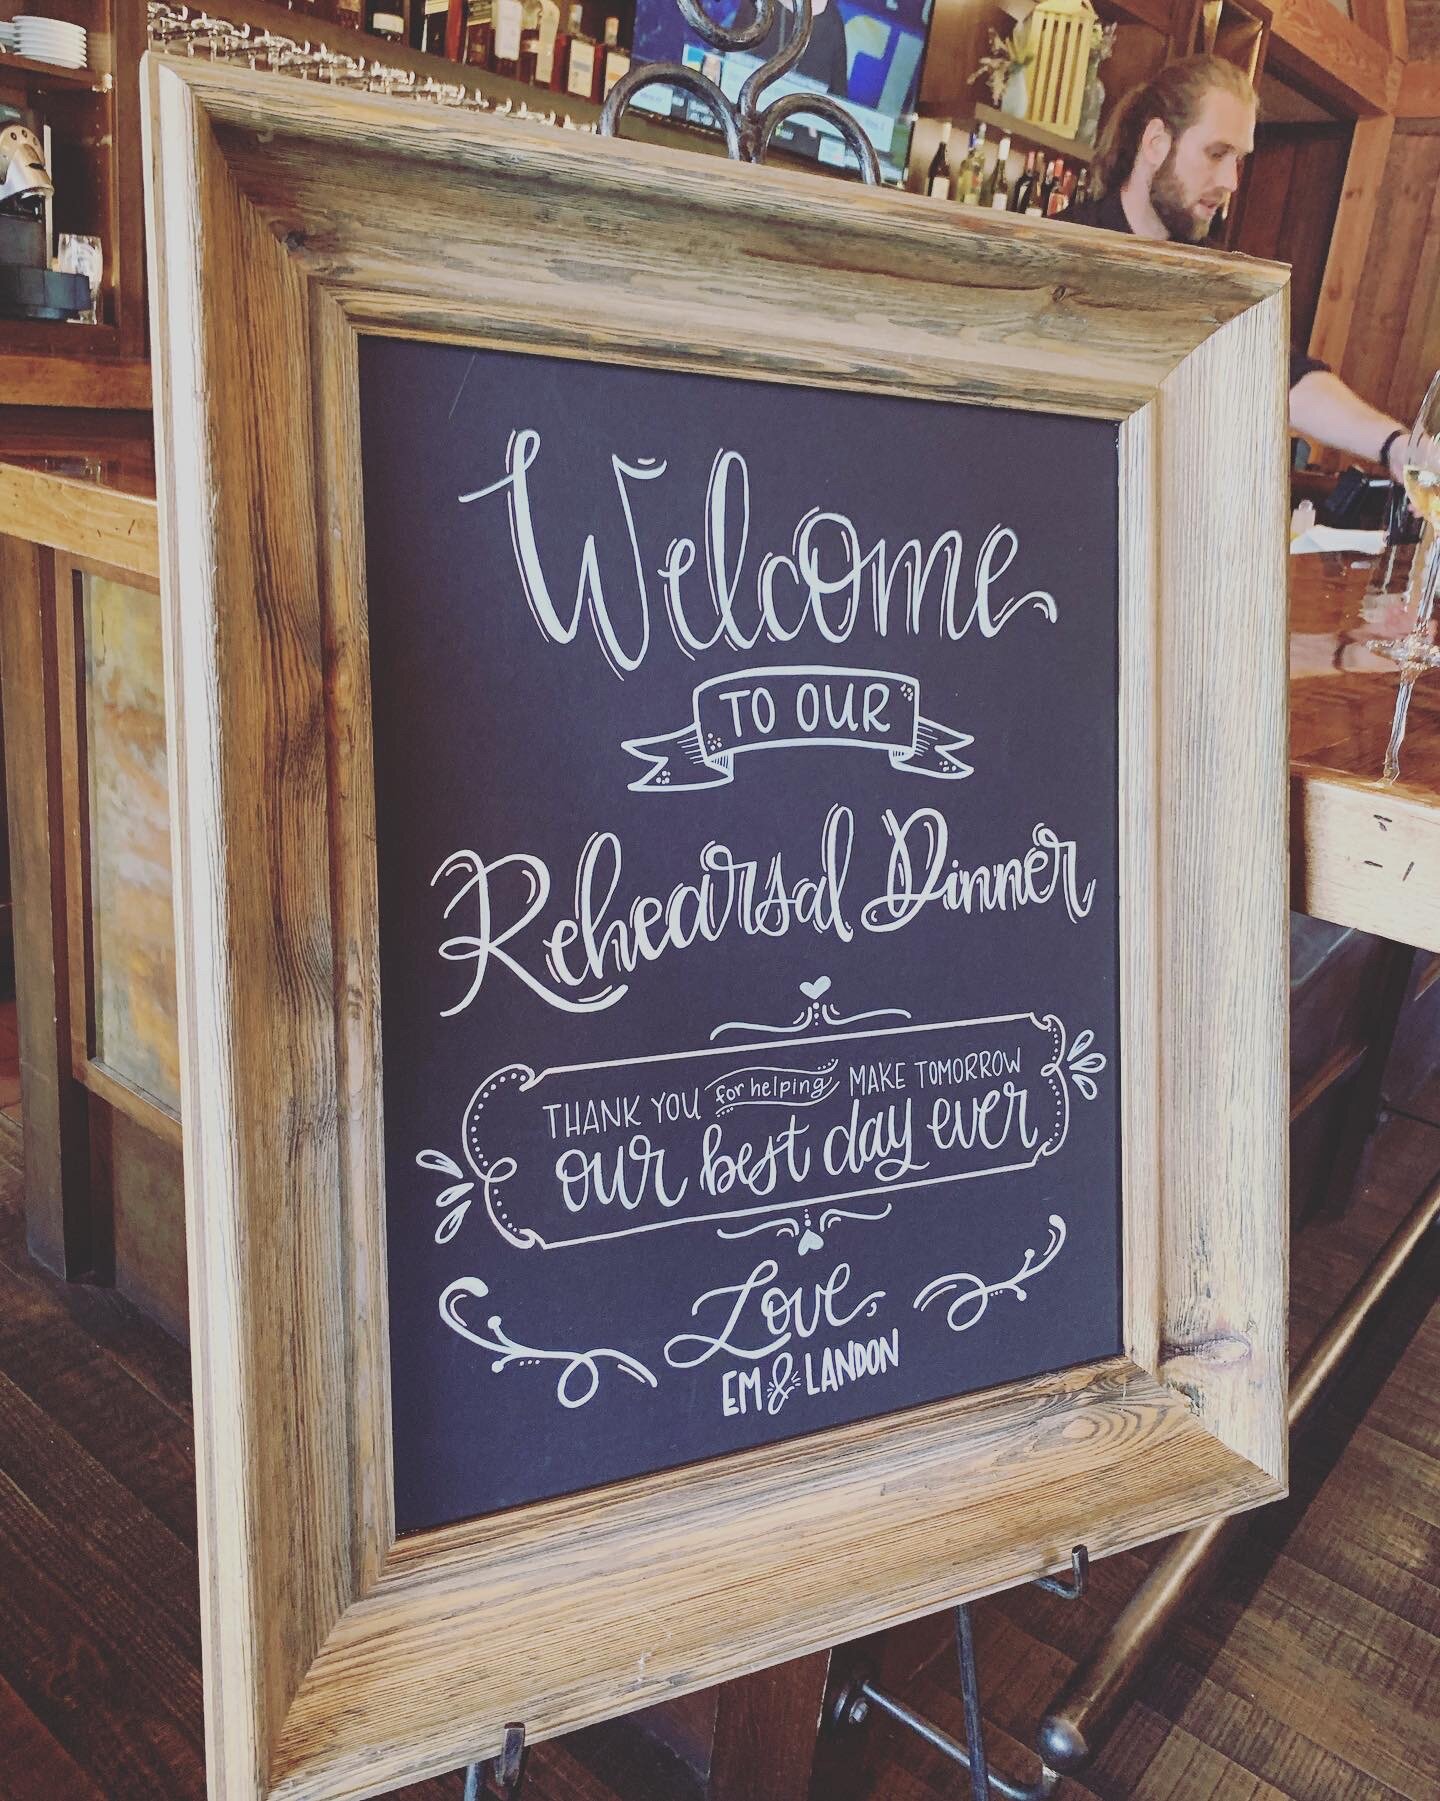 Welcome
TO OUR
Rehearsal Dinner
THANK YOU for helping MAKE TOMORROW
our best day ever
Love,
EM & LANDON